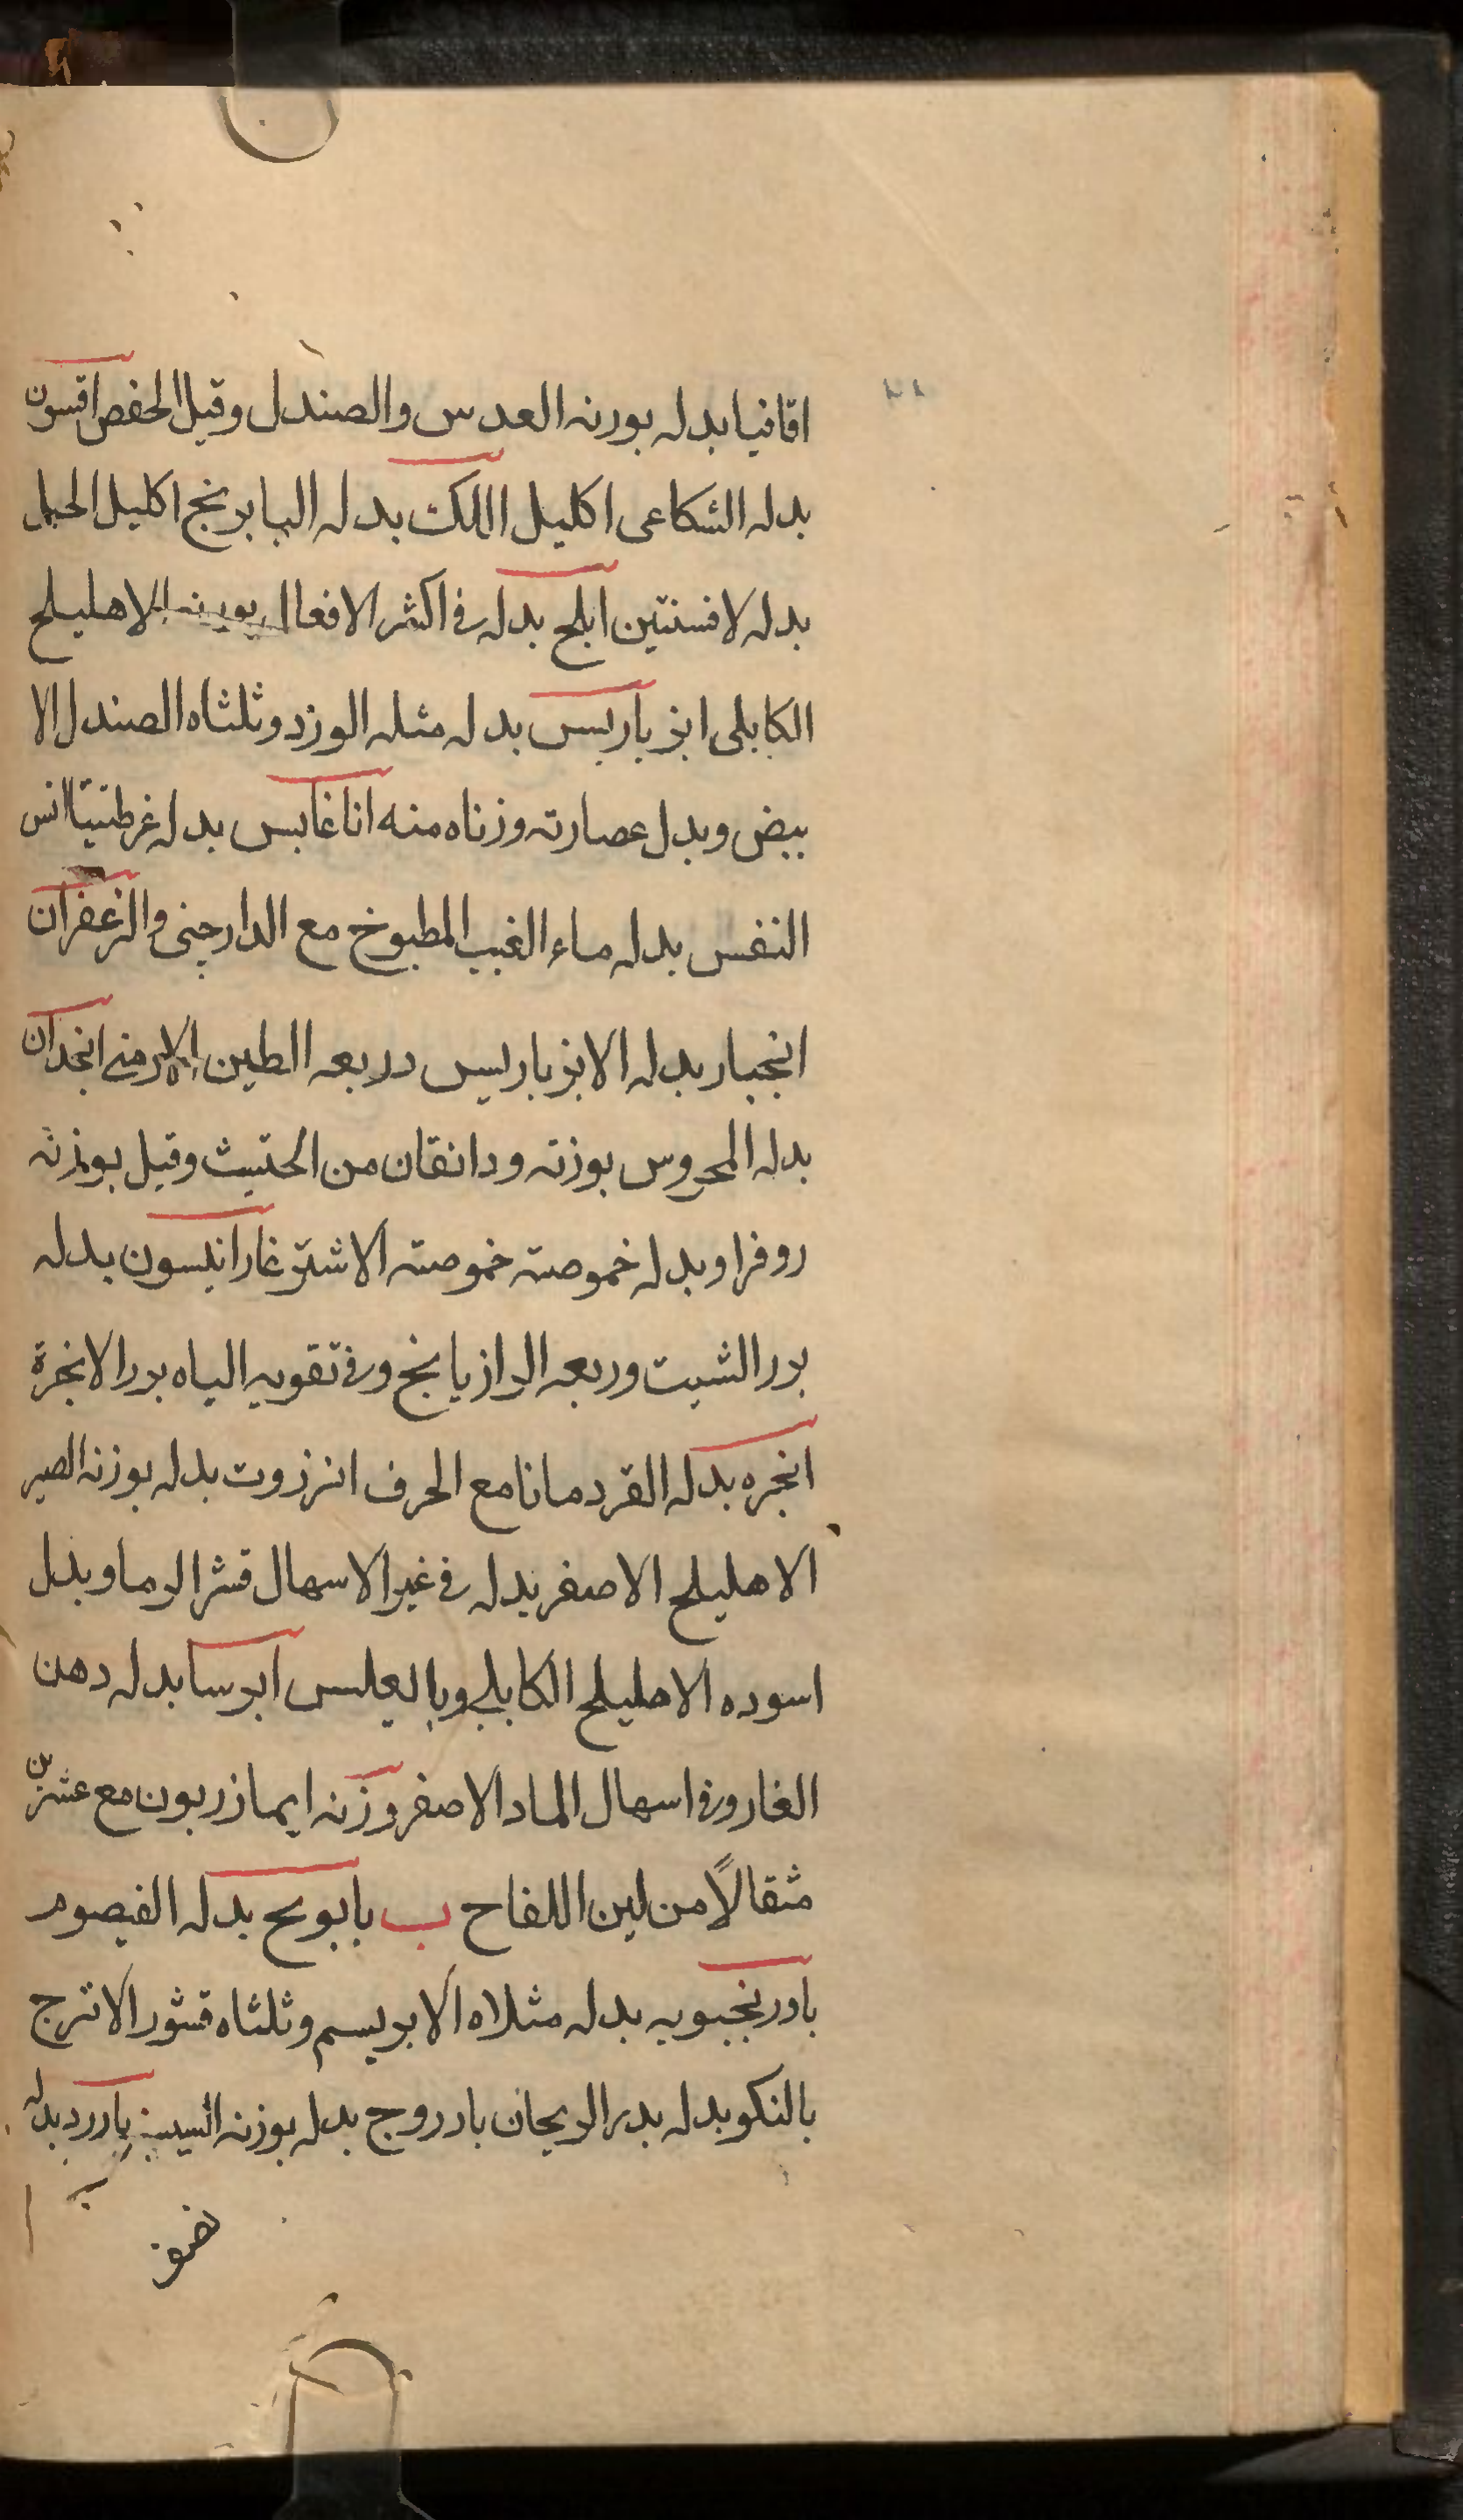 اقاقيا بدله بورنه العدس والصندل وقيل الحفض اقسون
بدله الشكاعى اكليل الملك بدله البابرنج اكليل الجبل
بدله لافسنتين ابلج بدله فى اكثر الافعال بوزنه الاهليلج
الكابلى انبرباريس بدله مثله الوزد وثلثاه الصندل الا
بيض وبدل عصارته وزناه منه اناغابس بدله غرطنيثا انس
النفس بدله ماء الغبب المطبوخ مع الدارچنى والزعفران
انجبار بدله الانبرباريس دربعه الطين الارمنى انجدان
بدله المحروس بوزنه ودانقان من الحتيث وقيل بوزنه
روفرا وبدله خموصته خموصته الاشترغار انيسون بدله
بدر الشبت وربعه الرازيانج وفى تقويه الباه بدر الانجرة
انجره بدله القردمانا مع الحرف انزروت بدله بوزنه الصبر
الاهليلج الاصفر بدله فى غير الاسهال قشر الرما وبدل
اسوده الاهليلج الكابلى وبالعلس ابرسا بدله دهن
الغار وفى اسهال الماد الاصفر وزنه ايمازريون مع عشرين
مثقالاً من لبن اللفاح ب بابونج بدله القيصوم
بادرنجبويه بدله مثلاه الابريسم وثلثاه قشور الاترج
بالنكو بدله بدر الريحان بادروج بدله بوزنه بادرد بدله